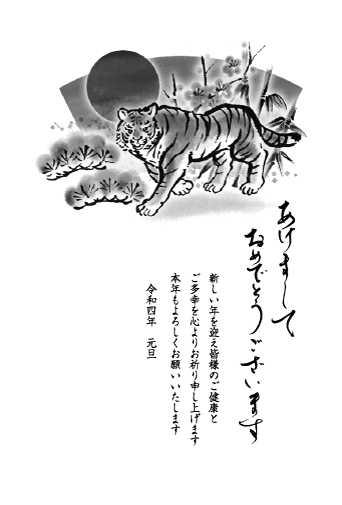 あけまして
おめでとうございます
新しい年を迎え皆様のご健康と
ご多幸を心よりお祈り申し上げます
本年もよろしくお願いいたします
令和四年　元旦